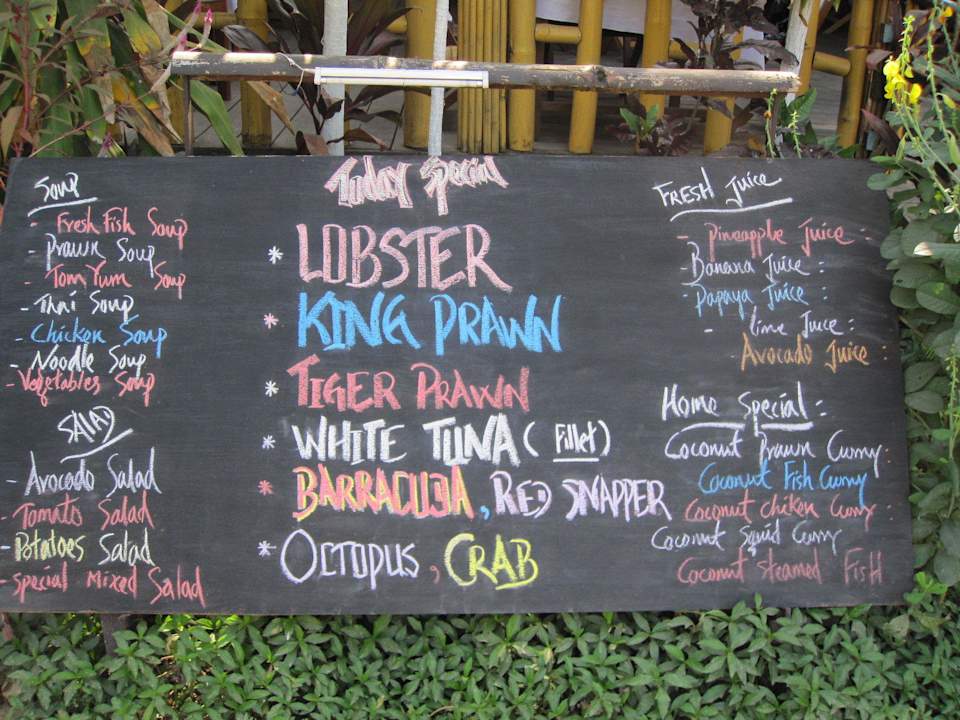 Soup
- Fresh Fish Soup
- Prawn Soup
- Tom Yum Soup
- Thai Soup
- Chicken Soup
- Noodle Soup
- Vegetables Soup
SALAD
- Avocado Salad
- Tomato Salad
- Potatoes Salad
- special Mixed Salad
Today Special
* LOBSTER
* KING PRAWN
* TIGER PRAWN
* WHITE TUNA ( Fillet )
* BARRACUDA, RED SNAPPER
* OCTOPUS, CRAB
FRESH Juice
- Pineapple Juice :
- Banana Juice :
- Papaya Juice :
- lime Juice :
- Avocado Juice :
Home Special :
Coconut Prawn Curry :
Coconut Fish Curry
Coconut chiken Curry :
Coconut Squid Curry
Coconut steamed FisH